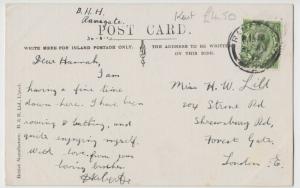 B. H. H.
Ramsgate.
Kent £4.50
POST CARD.
WRITE HERE FOR INLAND POSTAGE ONLY.
THE ADDRESS TO BE WRITTEN
ON THIS SIDE.
Dear Hannah,
I am
having a fine time
down here. I have been
rowing & bathing, and
quite enjoying myself.
With love from your
loving brother
Miss H. W.
Strone Rd
Shrewsbury Rd,
Forest Gate,
London. E.
British Manufacture